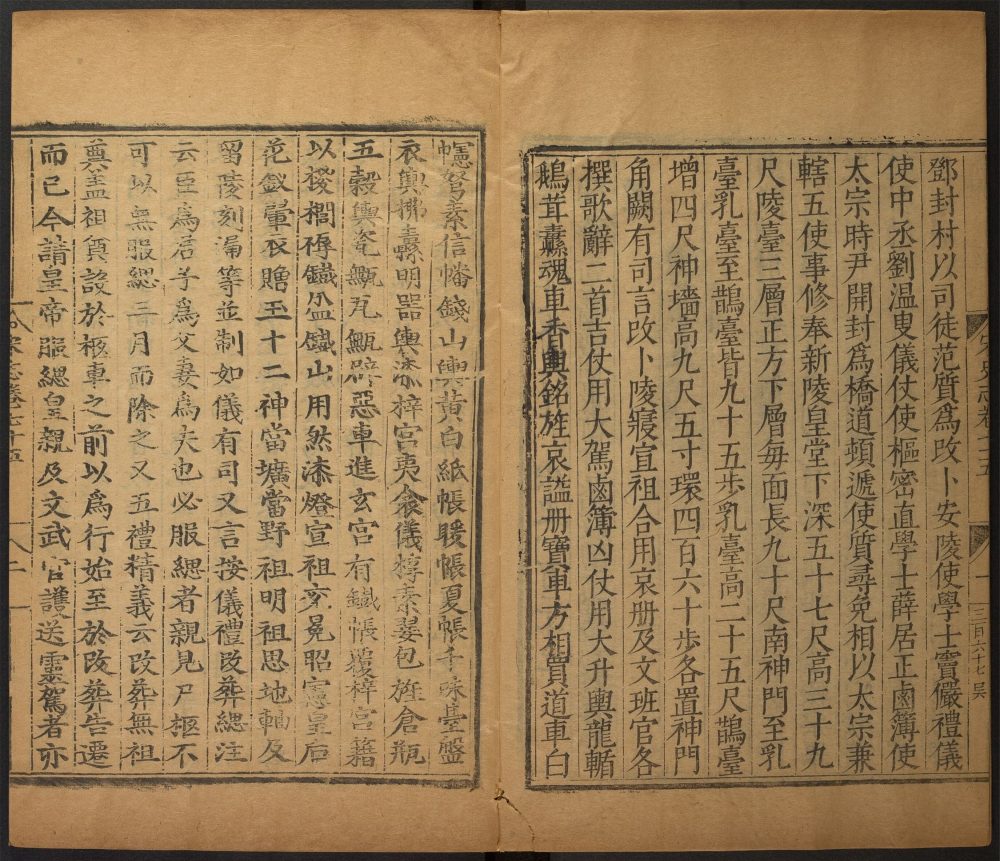 鄧封村以司徒范質爲改卜安陵使學士竇儼禮儀
使中丞劉温叟儀仗使樞密直學士薛居正鹵簿使
太宗時尹開封爲橋道頓遞使質尋免相以太宗兼
轄五使事修奉新陵皇堂下深五十七尺高三十九
尺陵臺三層正方下層每面長九十尺南神門至乳
臺乳臺至鵲臺皆九十五步乳臺高二十五尺鵲臺
增四尺神墻高九尺五寸環四百六十步各置神門
角闕有司言改卜陵寢宣祖合用哀册及文班官各
撰歌辭二首吉仗用大駕鹵簿凶仗用大升輿龍輴
鵝茸纛魂車香輿銘旌哀謚册寶車方相買道車白
幰弩素信幡錢山輿黃白紙帳暖帳夏帳千味臺盤
衣輿拂纛明器輿漆梓宮夷衾儀椁素翣包牲倉瓶
五榖輿瓷甒瓦甒辟惡車進玄宮有鐵帳覆梓宮藉
以椶櫚褥鐵盆鐵山用然漆燈宣祖衮冕昭憲皇后
花釵翬衣贈玉十二神當壙當野祖明祖思地軸及
留陵刻漏等並制如儀有司又言按儀禮改葬緦注
云臣爲君子爲父妻爲夫也必服緦者親見尸柩不
可以無服緦三月而除之又五禮精義云改葬無祖
奠蓋祖奠設於柩車之前以爲行始至於改葬告遷
而已今請皇帝服緦皇親及文武官護送靈駕者亦